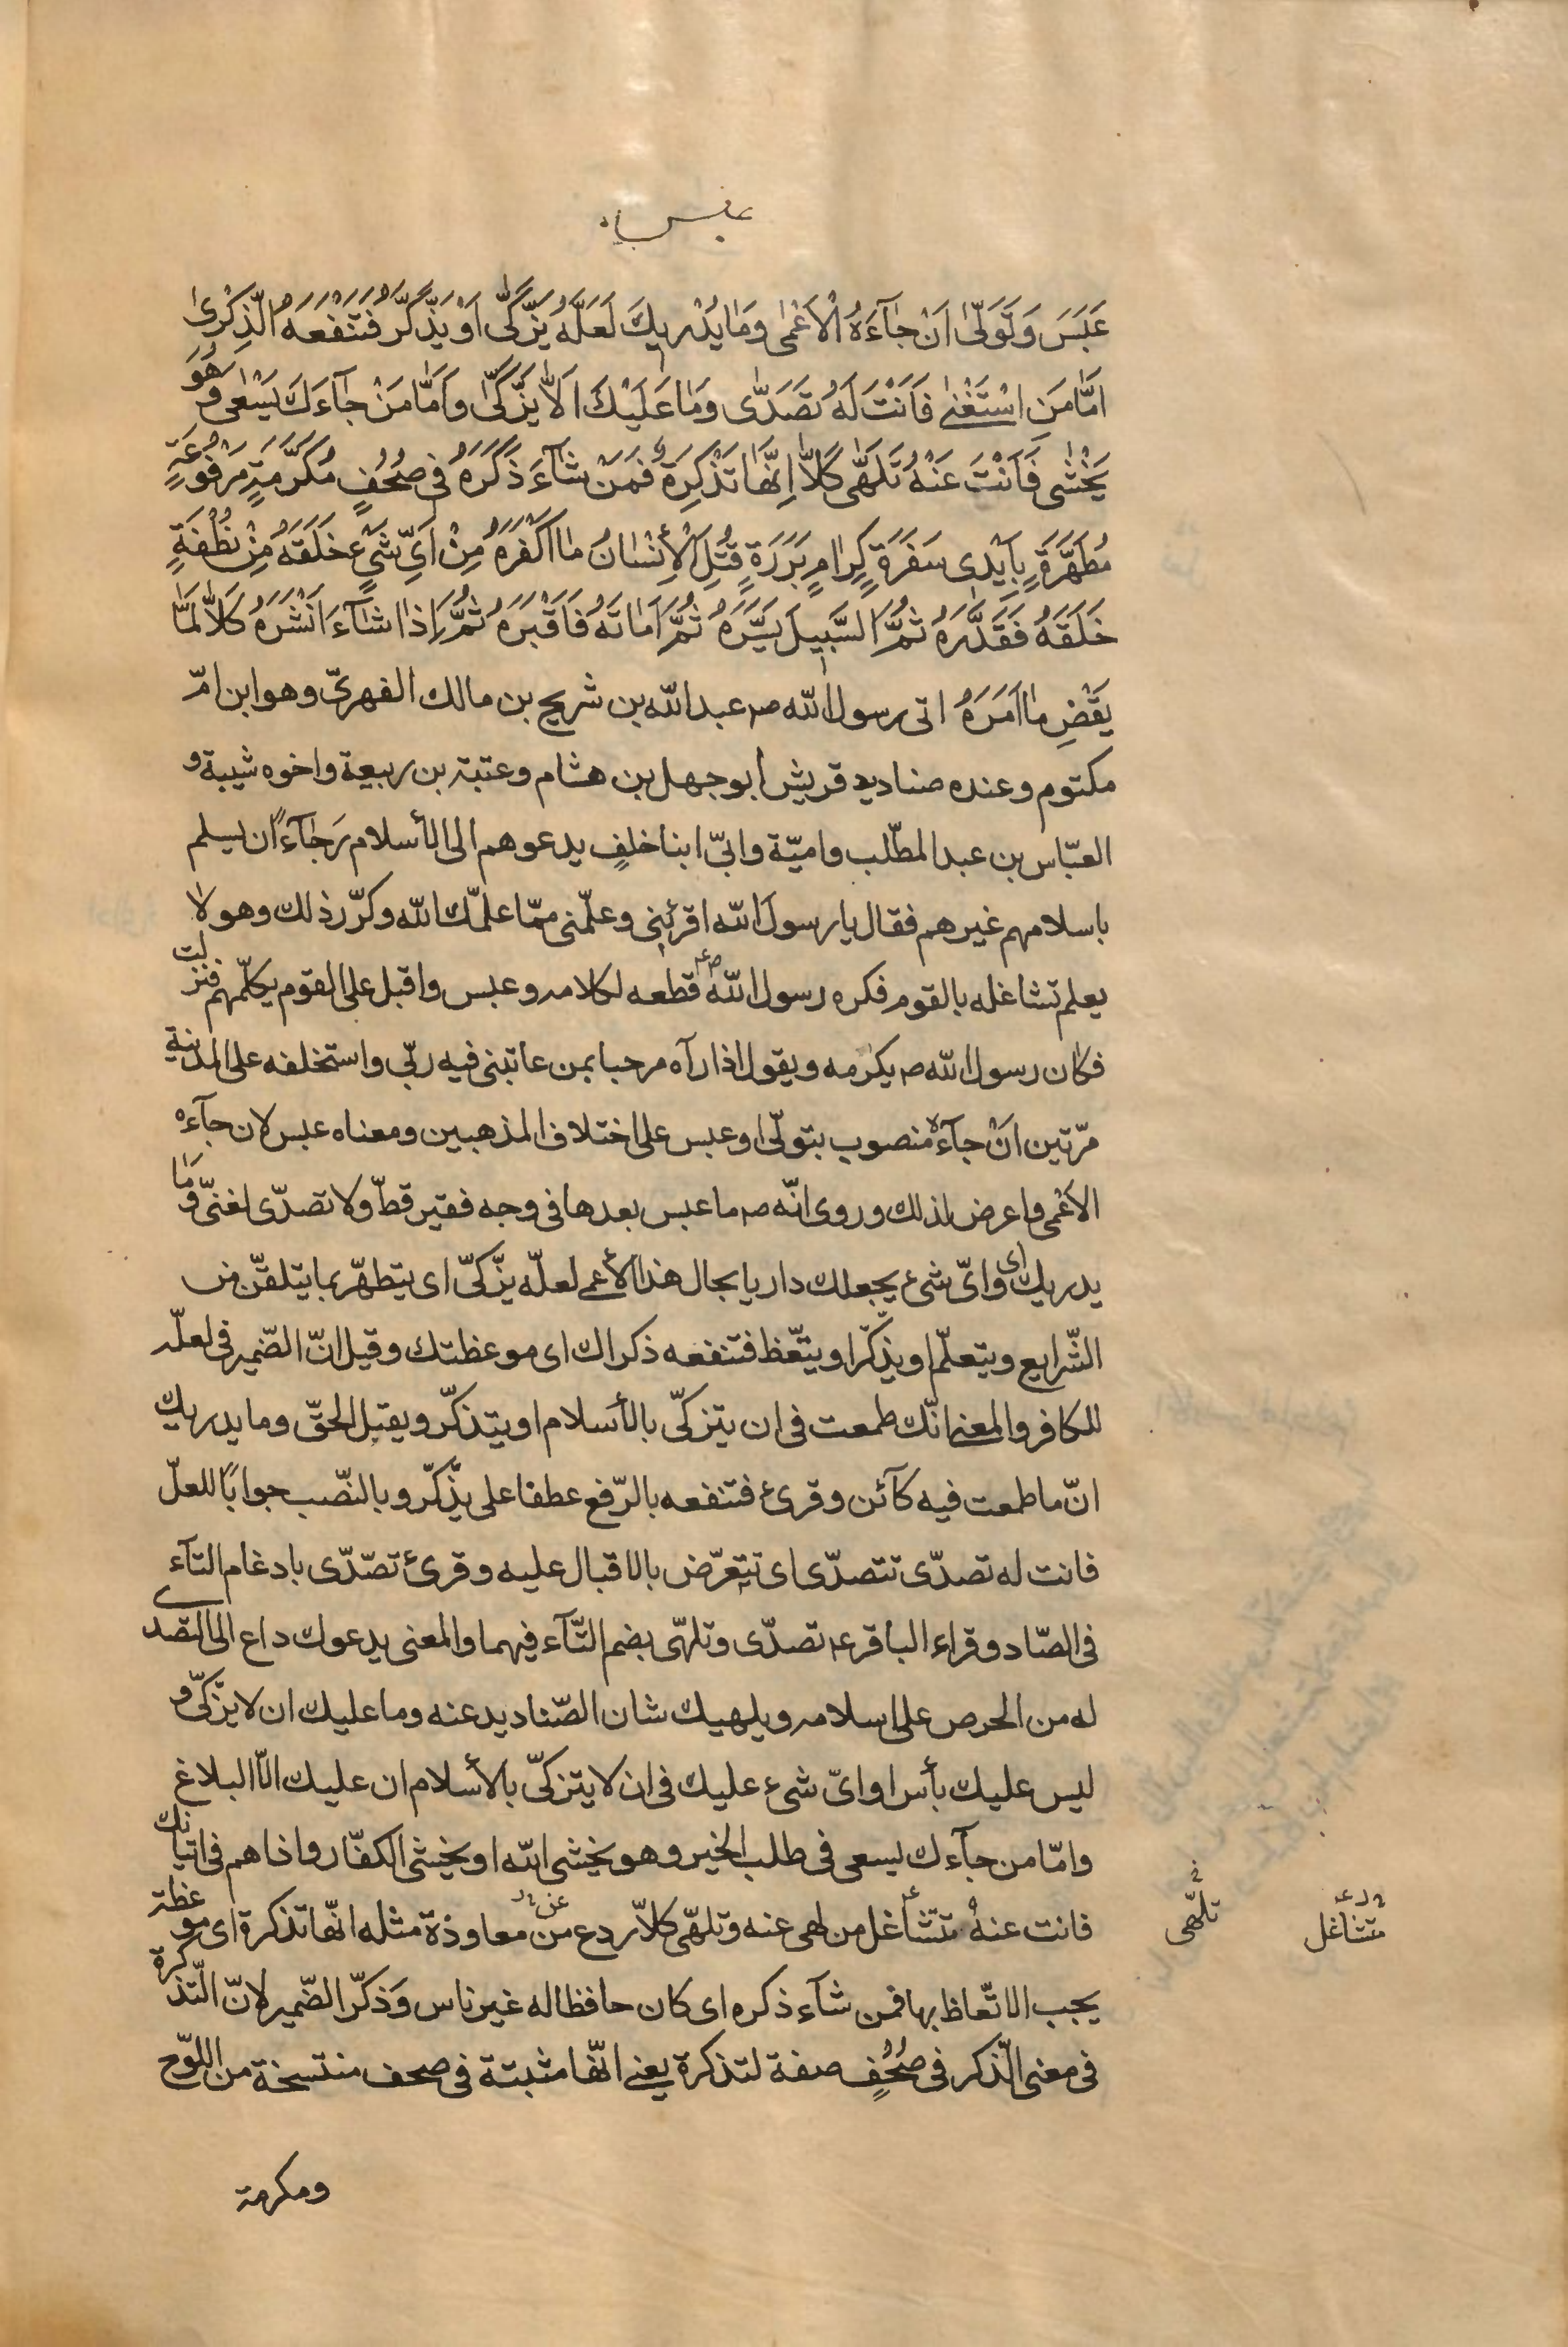 عبس
عَبَسَ وَتَوَلّىٰ اَنْ جٰآءَهُ الْاَعْمٰى وَمٰا يُدْرٖيكَ لَعَلَّهُ يَزَّكّٰى اَوْ يَذَّكَّرُ فَتَنْفَعَهُ الذِّكْرىٰ
اَمّٰا مَنِ اسْتَغْنٰى فَاَنْتَ لَهُ تَصَدّٰى وَمٰا عَلَيْكَ اَلّٰا يَزَّكّٰى وَاَمّٰا مَنْ جٰآءَكَ يَسْعٰى وَهُوَ
يَخْشٰى فَاَنْتَ عَنْهُ تَلَهّٰى كَلّٰا اِنَّهٰا تَذْكِرَةٌ فَمَنْ شٰآءَ ذَكَرَهُ فى صُحُفٍ مُكَرَّمَةٍ مَرْفُوعَةٍ
مُطَهَّرَةٍ بِاَيْدى سَفَرَةٍ كِرٰامٍ بَرَرَةٍ قُتِلَ الْأِنْسٰانُ مٰا اَكْفَرَهُ مِنْ اَىِّ شَىْءٍ خَلَقَهُ مِنْ نُطْفَةٍ
خَلَقَهُ فَقَدَّرَهُ ثُمَّ السَّبٖيلَ يَسَّرَهُ ثُمَّ اَمٰاتَهُ فَاَقْبَرَهُ ثُمَّ اِذٰا شٰآءَ اَنْشَرَهُ كَلّٰا لَمّٰا
يَقْضِ مٰا اَمَرَهُ اتى رسول اللّه ص عبد اللّه بن شريح بن مالك الفهرىّ وهو ابن امّ
مكتوم وعنده صناديد قريش ابو جهل بن هشام وعتبة بن ربيعة واخوه شيبة و
العبّاس بن عبد المطّلب واميّة وابىّ ابنا خلفٍ يدعوهم الى الأسلام رَجٰآءً ان يسلم
باسلامهم غيرهم فقال يا رسول اللّه اقرئنى وعلّمنى ممّا علمّك اللّه وكرّر ذلك وهو لا
يعلم تشاغله بالقوم فكره رسول اللّه ص قطعه لكلامه وعبس واقبل على القوم يكلّمهم فنزلت
فكان رسول اللّه ص يكرمه ويقول اذا رآه مرحبا بمن عاتبنى فيه ربّى واستخلفه على المدينة
مرّتين انْ جآءهُ منصوب بتولّى او عبس على اختلاف المذهبين ومعناه عبس لان جآءه
الأعْمى واعرض لذلك وروى انّه ص ما عبس بعدها فى وجه فقير قطّ ولا تصدّى لغنىّ وَمٰا
يدريك اى واىّ شىء يجعلك داريا بحال هذا الأعمى لعلّه يزّكىّ اى يتطهّر بما يتلقّن من
الشّرايع ويتعلّم او يذّكّر او يتّعظ فتنفعه ذكراك اى موعظتك وقيل انّ الضّمير فى لعلّه
للكافر والمعنى انّك طمعت فى ان يتزكّى بالأسلام او يتذكّر ويقبل الحقّ وما يدريك
انّ ما طمعت فيه كآئن وقرئ فتنفعه بالرّفع عطفا على يذّكّر وبالنّصب جوابًا للعلّ
فانت له تصدّى تتصدّى اى تتعرّض بالاقبال عليه وقرئ تصّدّى بادغام التآء
فى الصّاد وقراء الباقر ع تصدّى وتلهّى بضم التّآء فيهما والمعنى يدعوك داع الى التّصدى
له من الحرص على اسلامه ويلهيك شان الصّناديد عنه وما عليك ان لا يزّكىّ و
ليس عليك بأس او اىّ شىء عليك فى ان لا يتزكّى بالأسلام ان عليك الّا البلاغ
وامّا من جآءك يسعى فى طلب الخير وهو يخشى اللّه او يخشى الكفّار واذاهم فى اتيانك
فانت عنهُ تتشاغل من لهى عنه وتلهّى كلّا ردع عن من معاوذة مثله انّها تذكرة اى موعظة
يجب الاتّعاظ بها فمن شآء ذكره اى كان حافظا له غير ناس وَذكّر الضّمير لانّ التّذكرة
فى معنى الّذكر فى صُحُفٍ صفة لتذكرة يعنى انّها مثبتة فى صحف منتسخة من اللوّح
تلّهى
متشاغل
ومكرمة